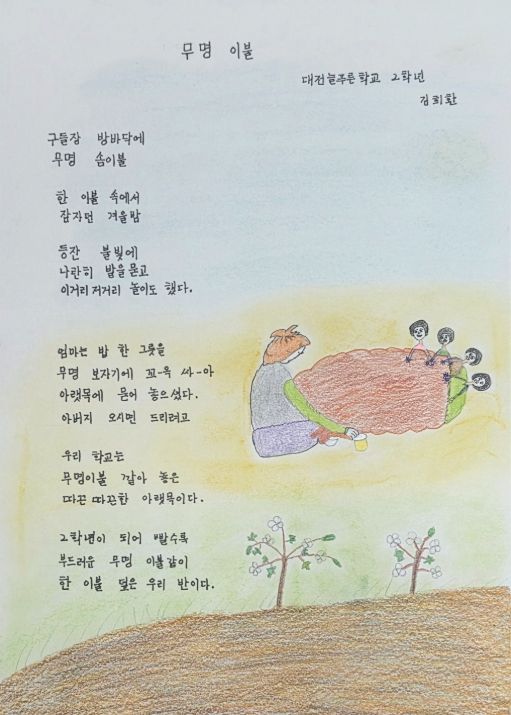 무명 이불
대전늘푸른학교 2학년
김희환
구들장 방바닥에
무명 솜이불
한 이불 속에서
잠자던 겨울밤
등잔 불빛에
나란히 발을 묻고
이거리저거리 놀이도 했다.
엄마는 밥 한 그릇을
무명 보자기에 꼬-옥 싸-아
아랫목에 묻어 놓으셨다.
아버지 오시면 드리려고
우리 학교는
무명이불 깔아 놓은
따끈 따끈한 아랫목이다.
2학년이 되어 빨수록
부드러운 무명 이불같이
한 이불 덮은 우리 반이다.